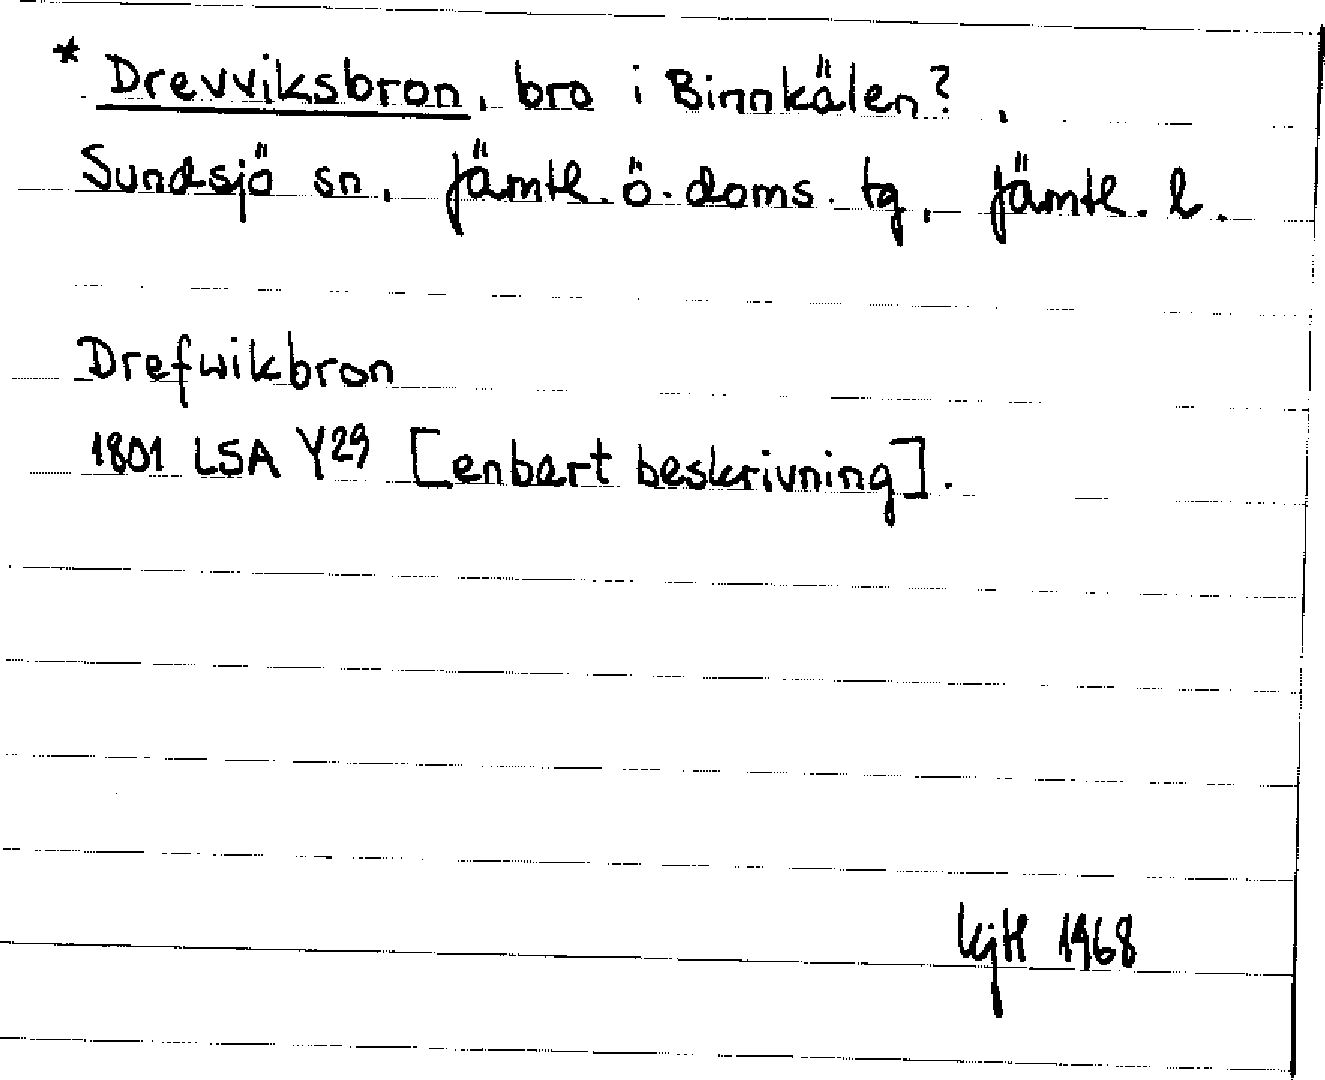 * Drevviksbron, bro i Binnkälen?,
Sundsjö sn, Jämtl. ö. doms. tg, Jämtl. l.
Drefwikbron
1801 LSA Y29 [enbart beskrivning].
KjH 1968